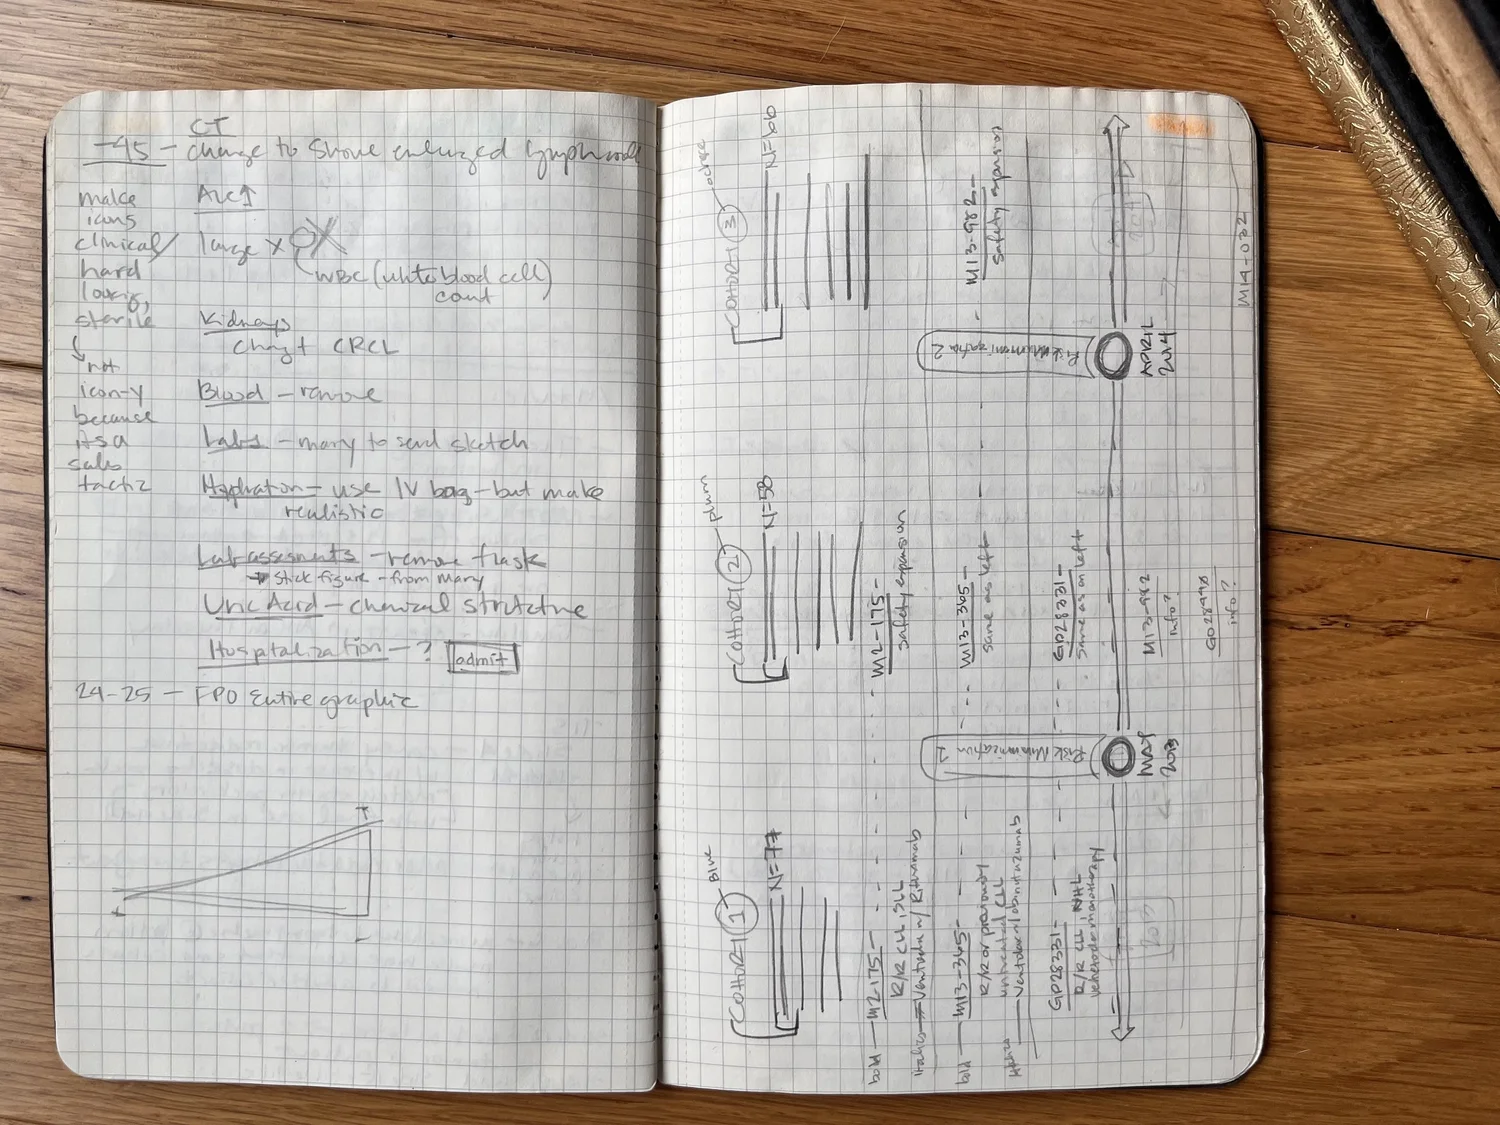 CT
-45 - change to show enlarged lymphnode
make
icons
clinical/
hard
looking,
sterile
not
icon-y
because
it's a
sales
tactic
ALC↑
large X
WBC (white blood cell)
count
Kidneys
change CRCL
Blood - remove
Labs - mary to send sketch
Hydration - use IV bag - but make
realistic
Lab assesments - remove flask
stick figure - from mary
Uric Acid - chemical structure
Hospitalization - ? admit
24-25 - FPO Entire graphic
+
+
-
COHORT 1
Blue
N=77
bold - M12-175 -
R/R CLL, SLL
italics - w/ Rituximab
bold - M13-365 -
R/R or previously
untreated CLL
w/ obinutuzumab
GP28331 -
R/R CLL, NHL
Risk Minimization 1
MAY
2013
COHORT 2
plum
N=58
M2-175 -
safety expansion
M13-365 -
same as left
GP28331 -
same as on left
M13-982
info?
GO28498
info?
COHORT 3
ochre
N=66
M13-982 -
safety expansion
Risk Minimization 2
APRIL
2014
M14-032